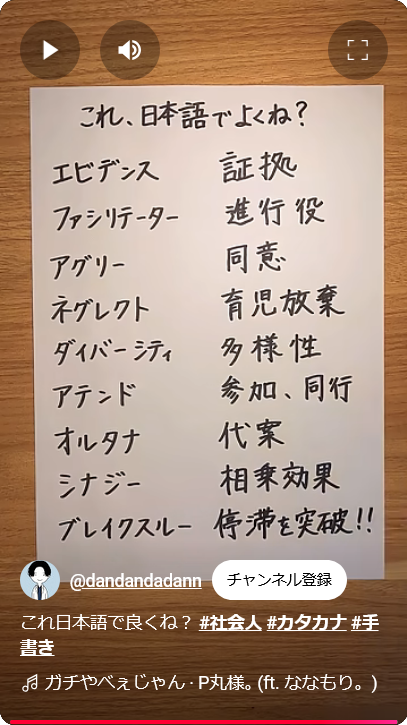 これ、日本語でよくね?
エビデンス 証拠
ファシリテーター 進行役
アグリー 同意
ネグレクト 育児放棄
ダイバーシティ 多様性
アテンド 参加、同行
オルタナ 代案
シナジー 相乗効果
ブレイクスルー 停滞を突破!!
@dandandadann チャンネル登録
これ日本語で良くね？ #社会人 #カタカナ #手
書き
ガチやべぇじゃん · P丸様。(ft. ななもり。)